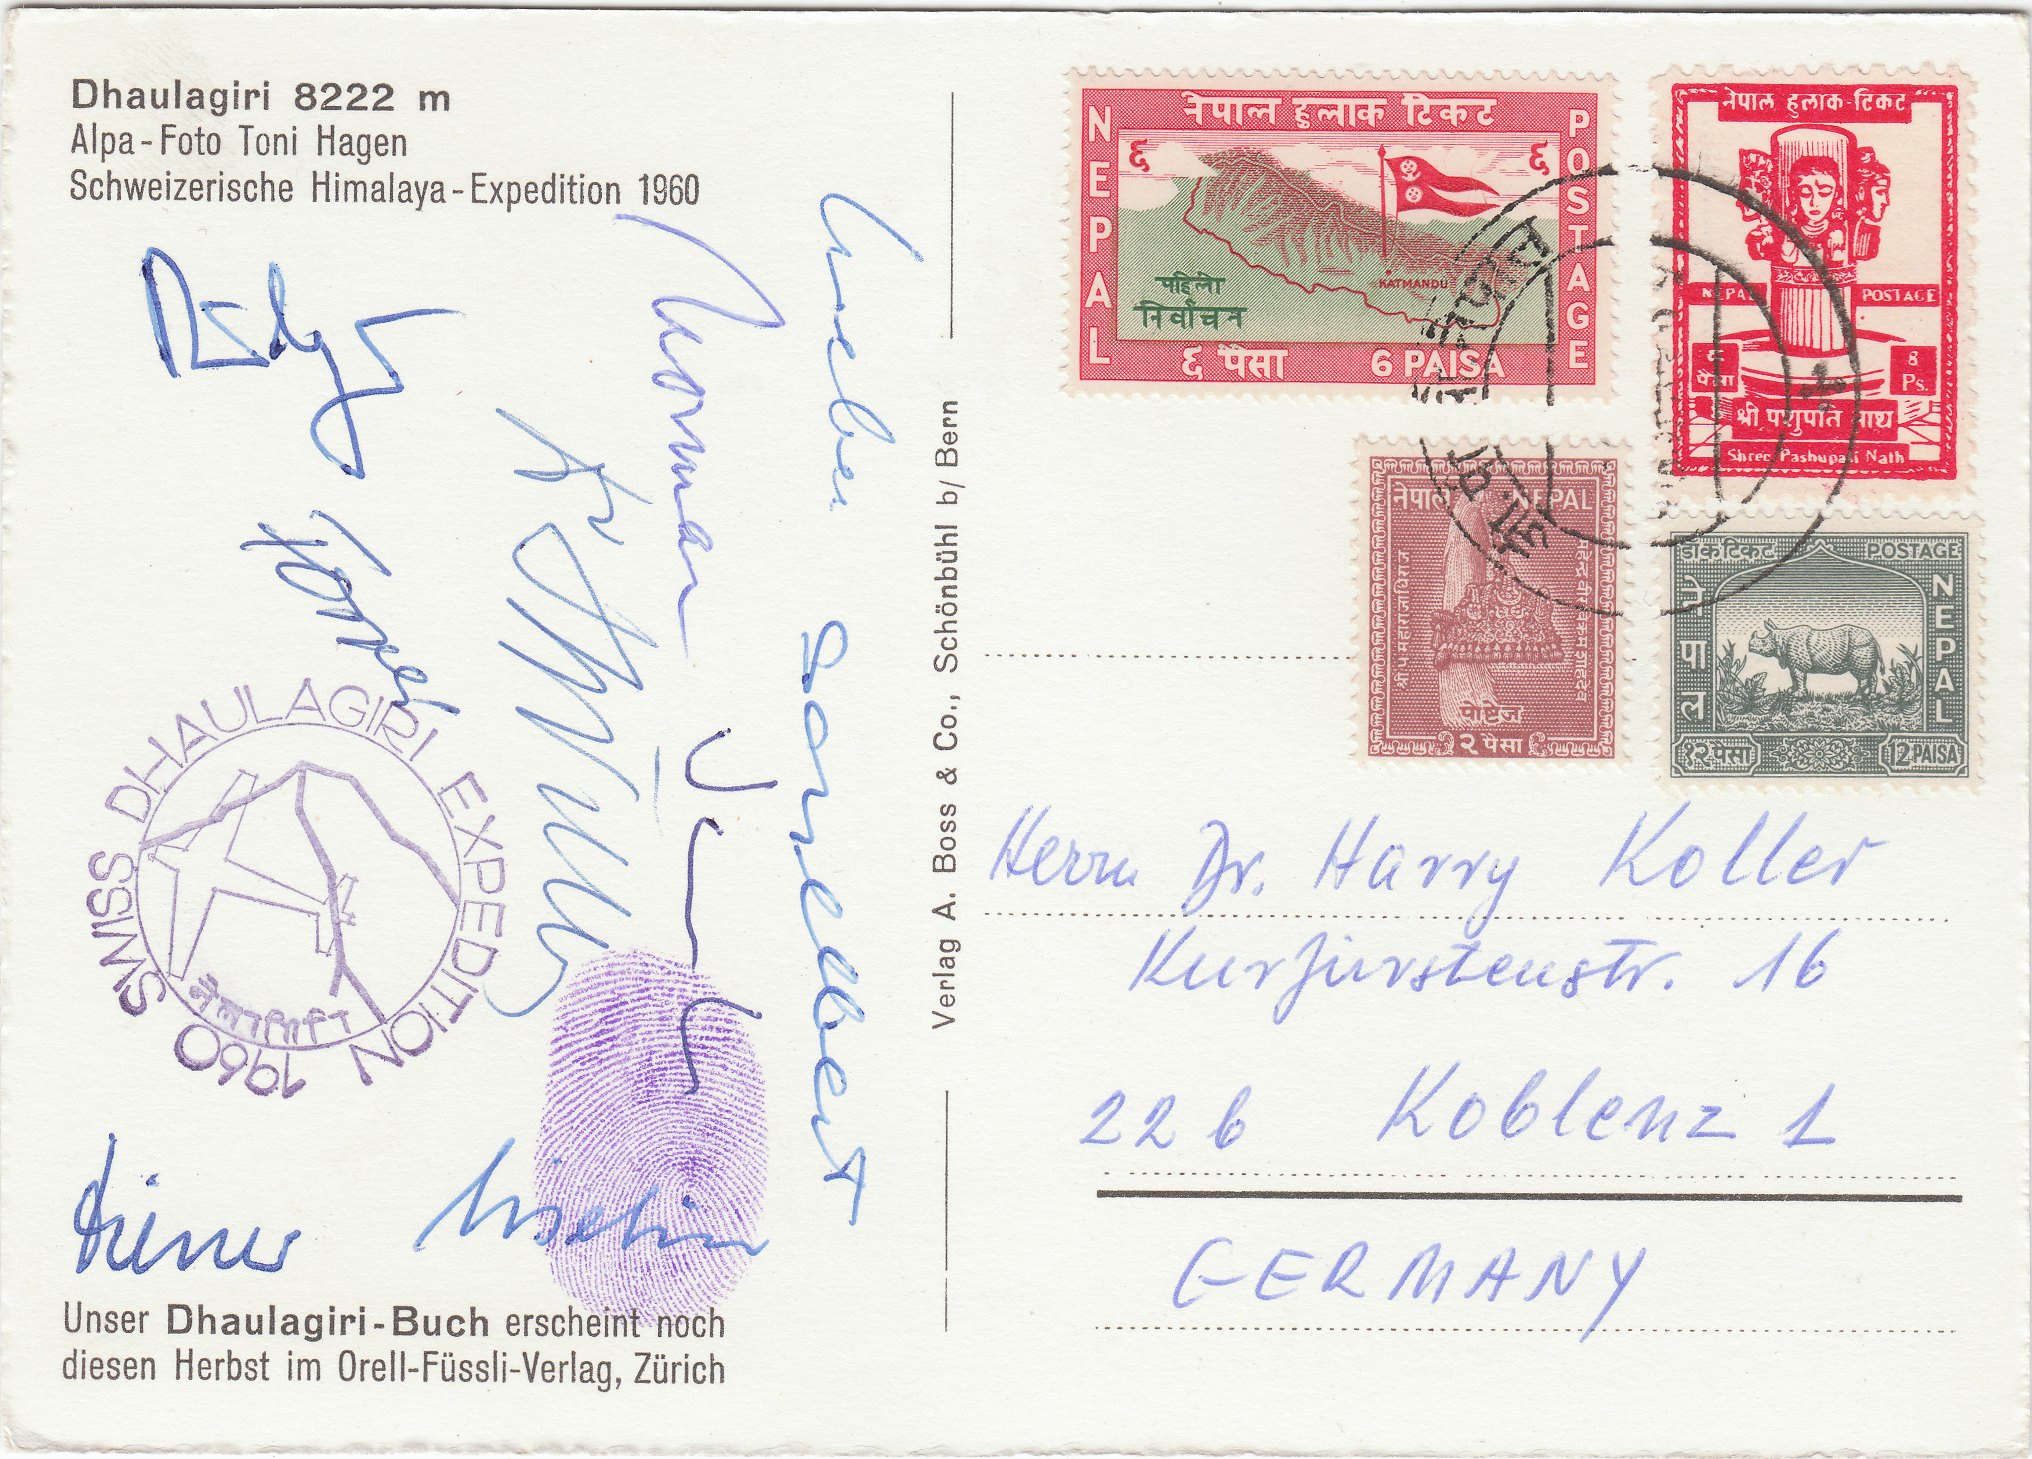 Dhaulagiri 8222 m
Alpa-Foto Toni Hagen
Schweizerische Himalaya-Expedition 1960
Forrer
Diener
SWISS DHAULAGIRI EXPEDITION 1960
Unser Dhaulagiri-Buch erscheint noch
diesen Herbst im Orell-Füssli-Verlag, Zürich
Verlag A. Boss & Co., Schönbühl b/ Bern
नेपाल हुलाक टिकट
NEPAL
POSTAGE
६
६
KATMANDU
पहिलो
निर्वाचन
६ पैसा
6 PAISA
नेपाल हुलाक-टिकट
NEPAL
POSTAGE
८ पैसा
8 Ps.
श्री पशुपति नाथ
Shree Pashupati Nath
नेपाल
NEPAL
पोष्टेज
२ पैसा
डाक टिकट
POSTAGE
नेपाल
NEPAL
१२ पैसा
12 PAISA
Herrn Dr. Harry Koller
Kurfürstenstr. 16
22b Koblenz 1
GERMANY